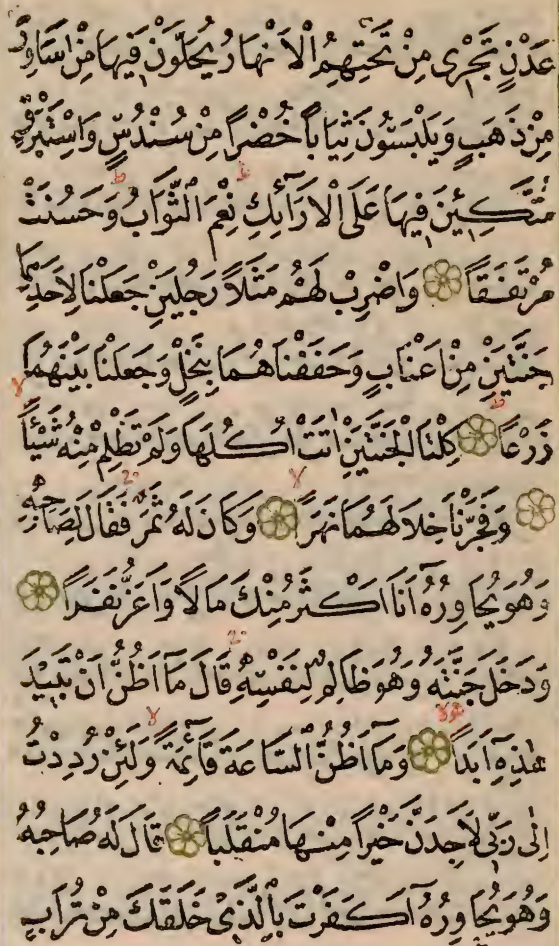 عَدْنٍ تَجْرٖى مِنْ تَحْتِهِمُ الْاَنْهَارُ يُحَلَّوْنَ فٖيهَا مِنْ اَسَاوِرَ
مِنْ ذَهَبٍ وَيَلْبَسُونَ ثِيَابًا خُضْرًا مِنْ سُنْدُسٍ وَاِسْتَبْرَقٍ
مُتَّكِـئٖينَ فٖيهَا عَلَى الْاَرَٓائِكِ نِعْمَ الثَّوَابُ وَحَسُنَتْ
مُرْتَفَقًا ۝ وَاضْرِبْ لَهُمْ مَثَلًا رَجُلَيْنِ جَعَلْنَا لِاَحَدِهِمَا
جَنَّتَيْنِ مِنْ اَعْنَابٍ وَحَفَفْنَاهُمَا بِنَخْلٍ وَجَعَلْنَا بَيْنَهُمَا
زَرْعًا ۝ كِلْتَا الْجَنَّتَيْنِ اٰتَتْ اُكُلَهَا وَلَمْ تَظْلِمْ مِنْهُ شَيْـًٔا
۝ وَفَجَّرْنَا خِلَالَهُمَا نَهَرًا ۝ وَكَانَ لَهُ ثَمَرٌ فَقَالَ لِصَاحِبِهٖ
وَهُوَ يُحَاوِرُهُٓ اَنَا۬ اَكْثَرُ مِنْكَ مَالًا وَاَعَزُّ نَفَرًا ۝
وَدَخَلَ جَنَّتَهُ وَهُوَ ظَالِمٌ لِنَفْسِهٖ قَالَ مَٓا اَظُنُّ اَنْ تَبٖيدَ
هٰذِهٖٓ اَبَدًا ۝ وَمَٓا اَظُنُّ السَّاعَةَ قَٓائِمَةً وَلَئِنْ رُدِدْتُ
اِلٰى رَبّٖى لَاَجِدَنَّ خَيْرًا مِنْهَا مُنْقَلَبًا ۝ قَالَ لَهُ صَاحِبُهُ
وَهُوَ يُحَاوِرُهُٓ اَكَفَرْتَ بِالَّذٖى خَلَقَكَ مِنْ تُرَابٍ